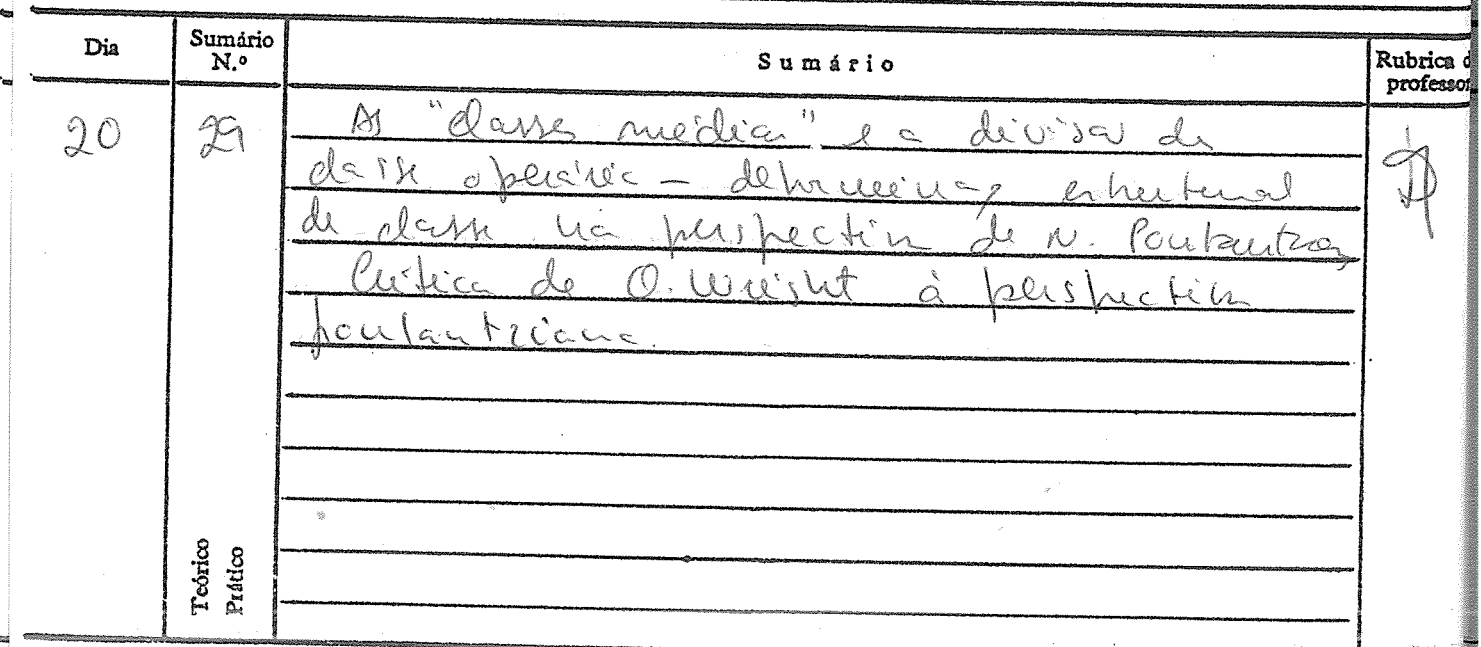 Dia
Sumário
N.º
Sumário
Rubrica d
professor
20
29
As "classes médias" e a divisão da
classe operária – determinação estrutural
de classe na perspectiva de N. Poulantzas
Crítica de O. Wright à perspectiva
poulantziana.
Teórico
Prático